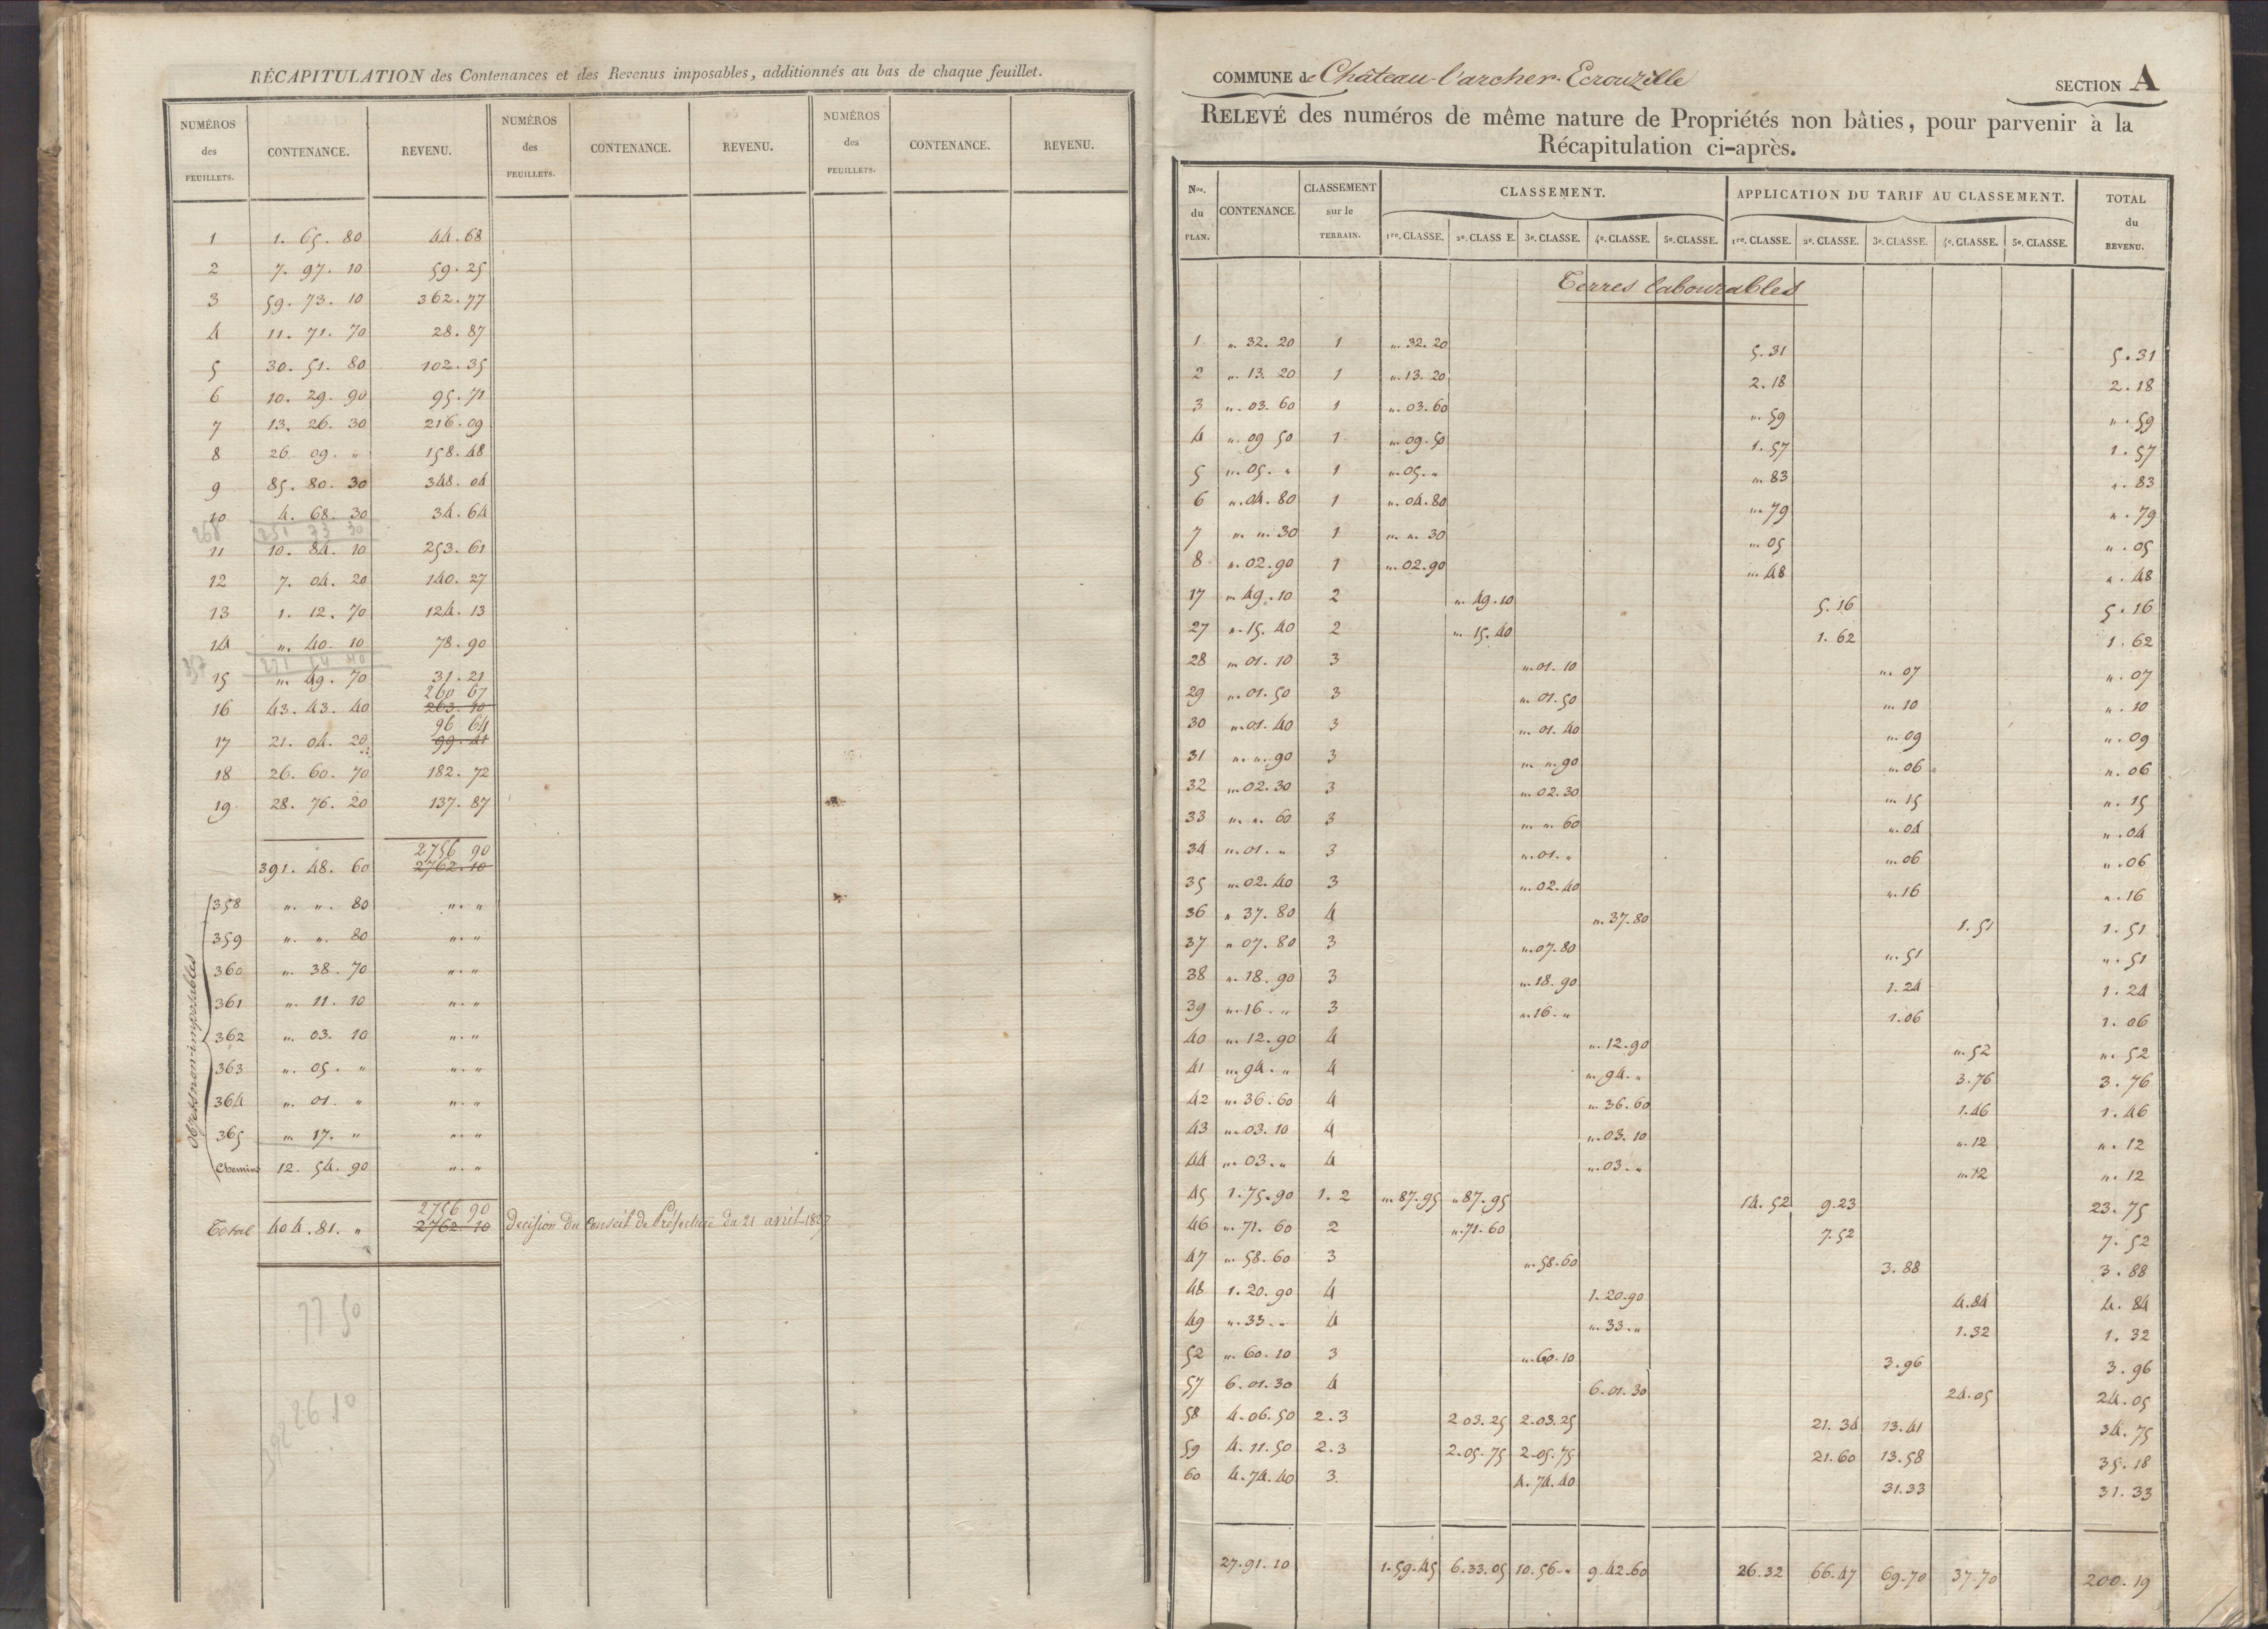 RÉCAPITULATION des Contenances et des Revenus imposables, additionnés au bas de chaque feuillet.
NUMÉROS des FEUILLETS. CONTENANCE. REVENU. NUMÉROS des FEUILLETS. CONTENANCE. REVENU. NUMÉROS des FEUILLETS. CONTENANCE. REVENU.
1 1. 65. 80 44.68
2 7. 97. 10 59.25
3 59. 73. 10 362.77
4 11. 71. 70 28.87
5 30. 51. 80 102.35
6 10. 29. 90 95.71
7 13. 26. 30 216.09
8 26. 09. " 158.48
9 85. 80. 30 348.04
10 4. 68. 30 34.64
268 251 73 30
11 10. 84. 10 253.61
12 7. 04. 20 140.27
13 1. 12. 70 124.13
14 ". 40. 10 78.90
357 271 14 40
15 ". 49. 70 31.21
260 67
16 43. 43. 40 263.40
96 64
17 21. 04. 20 99.41
18 26. 60. 70 182.72
19 28. 76. 20 137.87
2756 90
391. 48. 60 2762.10
Objets non imposables
358 ". ". 80 ". "
359 ". ". 80 ". "
360 ". 38. 70 ". "
361 ". 11. 10 ". "
362 ". 03. 10 ". "
363 ". 05. " ". "
364 ". 01. " ". "
365 ". 17. " ". "
Chemins 12. 54. 90 ". "
2756 90
Total 404. 81. " 2762 10 Decision du Conseil de Préfecture du 21 avril 1827
77 50
392 26 10
COMMUNE de Château-l'archer-Ecrouzille
SECTION A
RELEVÉ des numéros de même nature de Propriétés non bâties, pour parvenir à la
Récapitulation ci-après.
Nos. du PLAN. CONTENANCE. CLASSEMENT sur le TERRAIN. CLASSEMENT. APPLICATION DU TARIF AU CLASSEMENT. TOTAL du REVENU.
1re. CLASSE. 2e. CLASSE. 3e. CLASSE. 4e. CLASSE. 5e. CLASSE. 1re. CLASSE. 2e. CLASSE. 3e. CLASSE. 4e. CLASSE. 5e. CLASSE.
Terres labourables
1 ". 32. 20 1 ". 32. 20 5.31 5.31
2 ". 13. 20 1 ". 13. 20 2.18 2.18
3 ". 03. 60 1 ". 03. 60 ". 59 ". 59
4 ". 09 50 1 ". 09. 50 1.57 1.57
5 ". 05. " 1 ". 05. " ". 83 ". 83
6 ". 04. 80 1 ". 04. 80 ". 79 ". 79
7 ". ". 30 1 ". ". 30 ". 05 ". 05
8 ". 02. 90 1 ". 02. 90 ". 48 ". 48
17 ". 49. 10 2 ". 49. 10 5.16 5.16
27 ". 15. 40 2 ". 15. 40 1.62 1.62
28 ". 01. 10 3 ". 01. 10 ". 07 ". 07
29 ". 01. 50 3 ". 01. 50 ". 10 ". 10
30 ". 01. 40 3 ". 01. 40 ". 09 ". 09
31 ". ". 90 3 ". ". 90 ". 06 ". 06
32 ". 02. 30 3 ". 02. 30 ". 15 ". 15
33 ". ". 60 3 ". ". 60 ". 04 ". 04
34 ". 01. " 3 ". 01. " ". 06 ". 06
35 ". 02. 40 3 ". 02. 40 ". 16 ". 16
36 ". 37. 80 4 ". 37. 80 1.51 1.51
37 ". 07. 80 3 ". 07. 80 ". 51 ". 51
38 ". 18. 90 3 ". 18. 90 1.24 1.24
39 ". 16. " 3 ". 16. " 1.06 1.06
40 ". 12. 90 4 ". 12. 90 ". 52 ". 52
41 ". 94. " 4 ". 94. " 3.76 3.76
42 ". 36. 60 4 ". 36. 60 1.46 1.46
43 ". 03. 10 4 ". 03. 10 ". 12 ". 12
44 ". 03. " 4 ". 03. " ". 12 ". 12
45 1. 75. 90 1. 2 ". 87. 95 ". 87. 95 14.52 9.23 23.75
46 ". 71. 60 2 ". 71. 60 7.52 7.52
47 ". 58. 60 3 ". 58. 60 3.88 3.88
48 1. 20. 90 4 1. 20. 90 4.84 4.84
49 ". 33. " 4 ". 33. " 1.32 1.32
52 ". 60. 10 3 ". 60. 10 3.96 3.96
57 6. 01. 30 4 6. 01. 30 24.05 24.05
58 4. 06. 50 2. 3 2 03. 25 2. 03. 25 21.34 13.41 34.75
59 4. 11. 50 2. 3 2. 05. 75 2. 05. 75 21.60 13.58 35.18
60 4. 74. 40 3. 4. 74. 40 31.33 31.33
27. 91. 10 1. 59. 45 6. 33. 05 10. 56. " 9. 42. 60 26.32 66.47 69.70 37.70 200.19